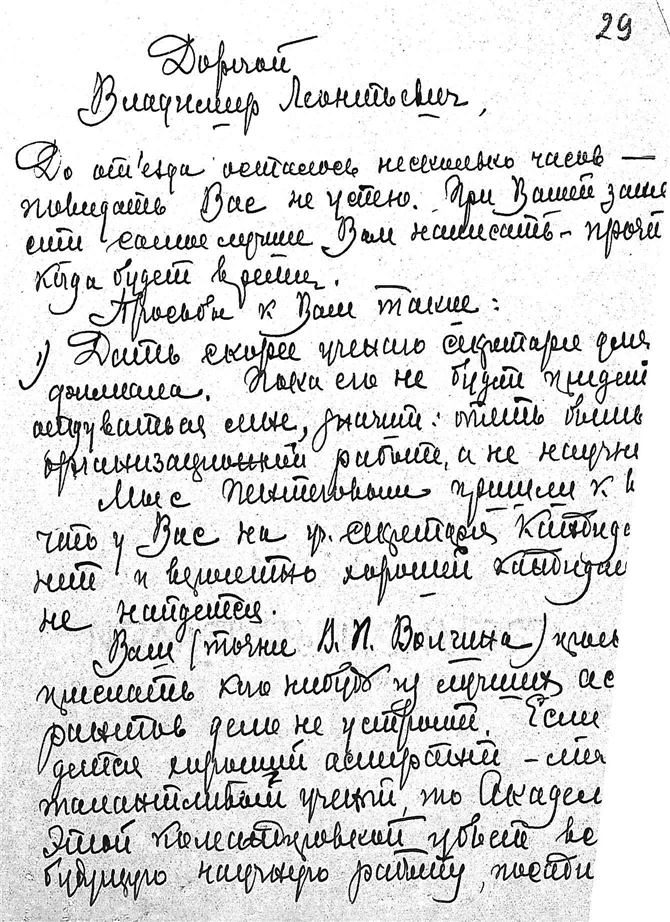 29
Дорогой
Владимир Леонтьевич,
До от'езда осталось несколько часов —
повидать Вас не успею. При Вашей заня
сти самое лучшее Вам написать – прочт
когда будет время.
Просьбы к Вам такие:
1) Дать скорее ученого секретаря для
филиала. Пока его не будет придет
отдуваться мне, значит: опять больш
организационной работе, а не научн
Мы с пришли к в
что у Вас на уч. секретаря кандида
нет и вероятно хороший кандидат
не найдется.
Ваш (точнее В. П. Волгина)
прислать кого нибудь из лучших ас
рантов дело не устроит. Если
дется хороший аспирант –
талантливый ученый, то Академ
этой командировкой убьет вс
будущую научную работу,